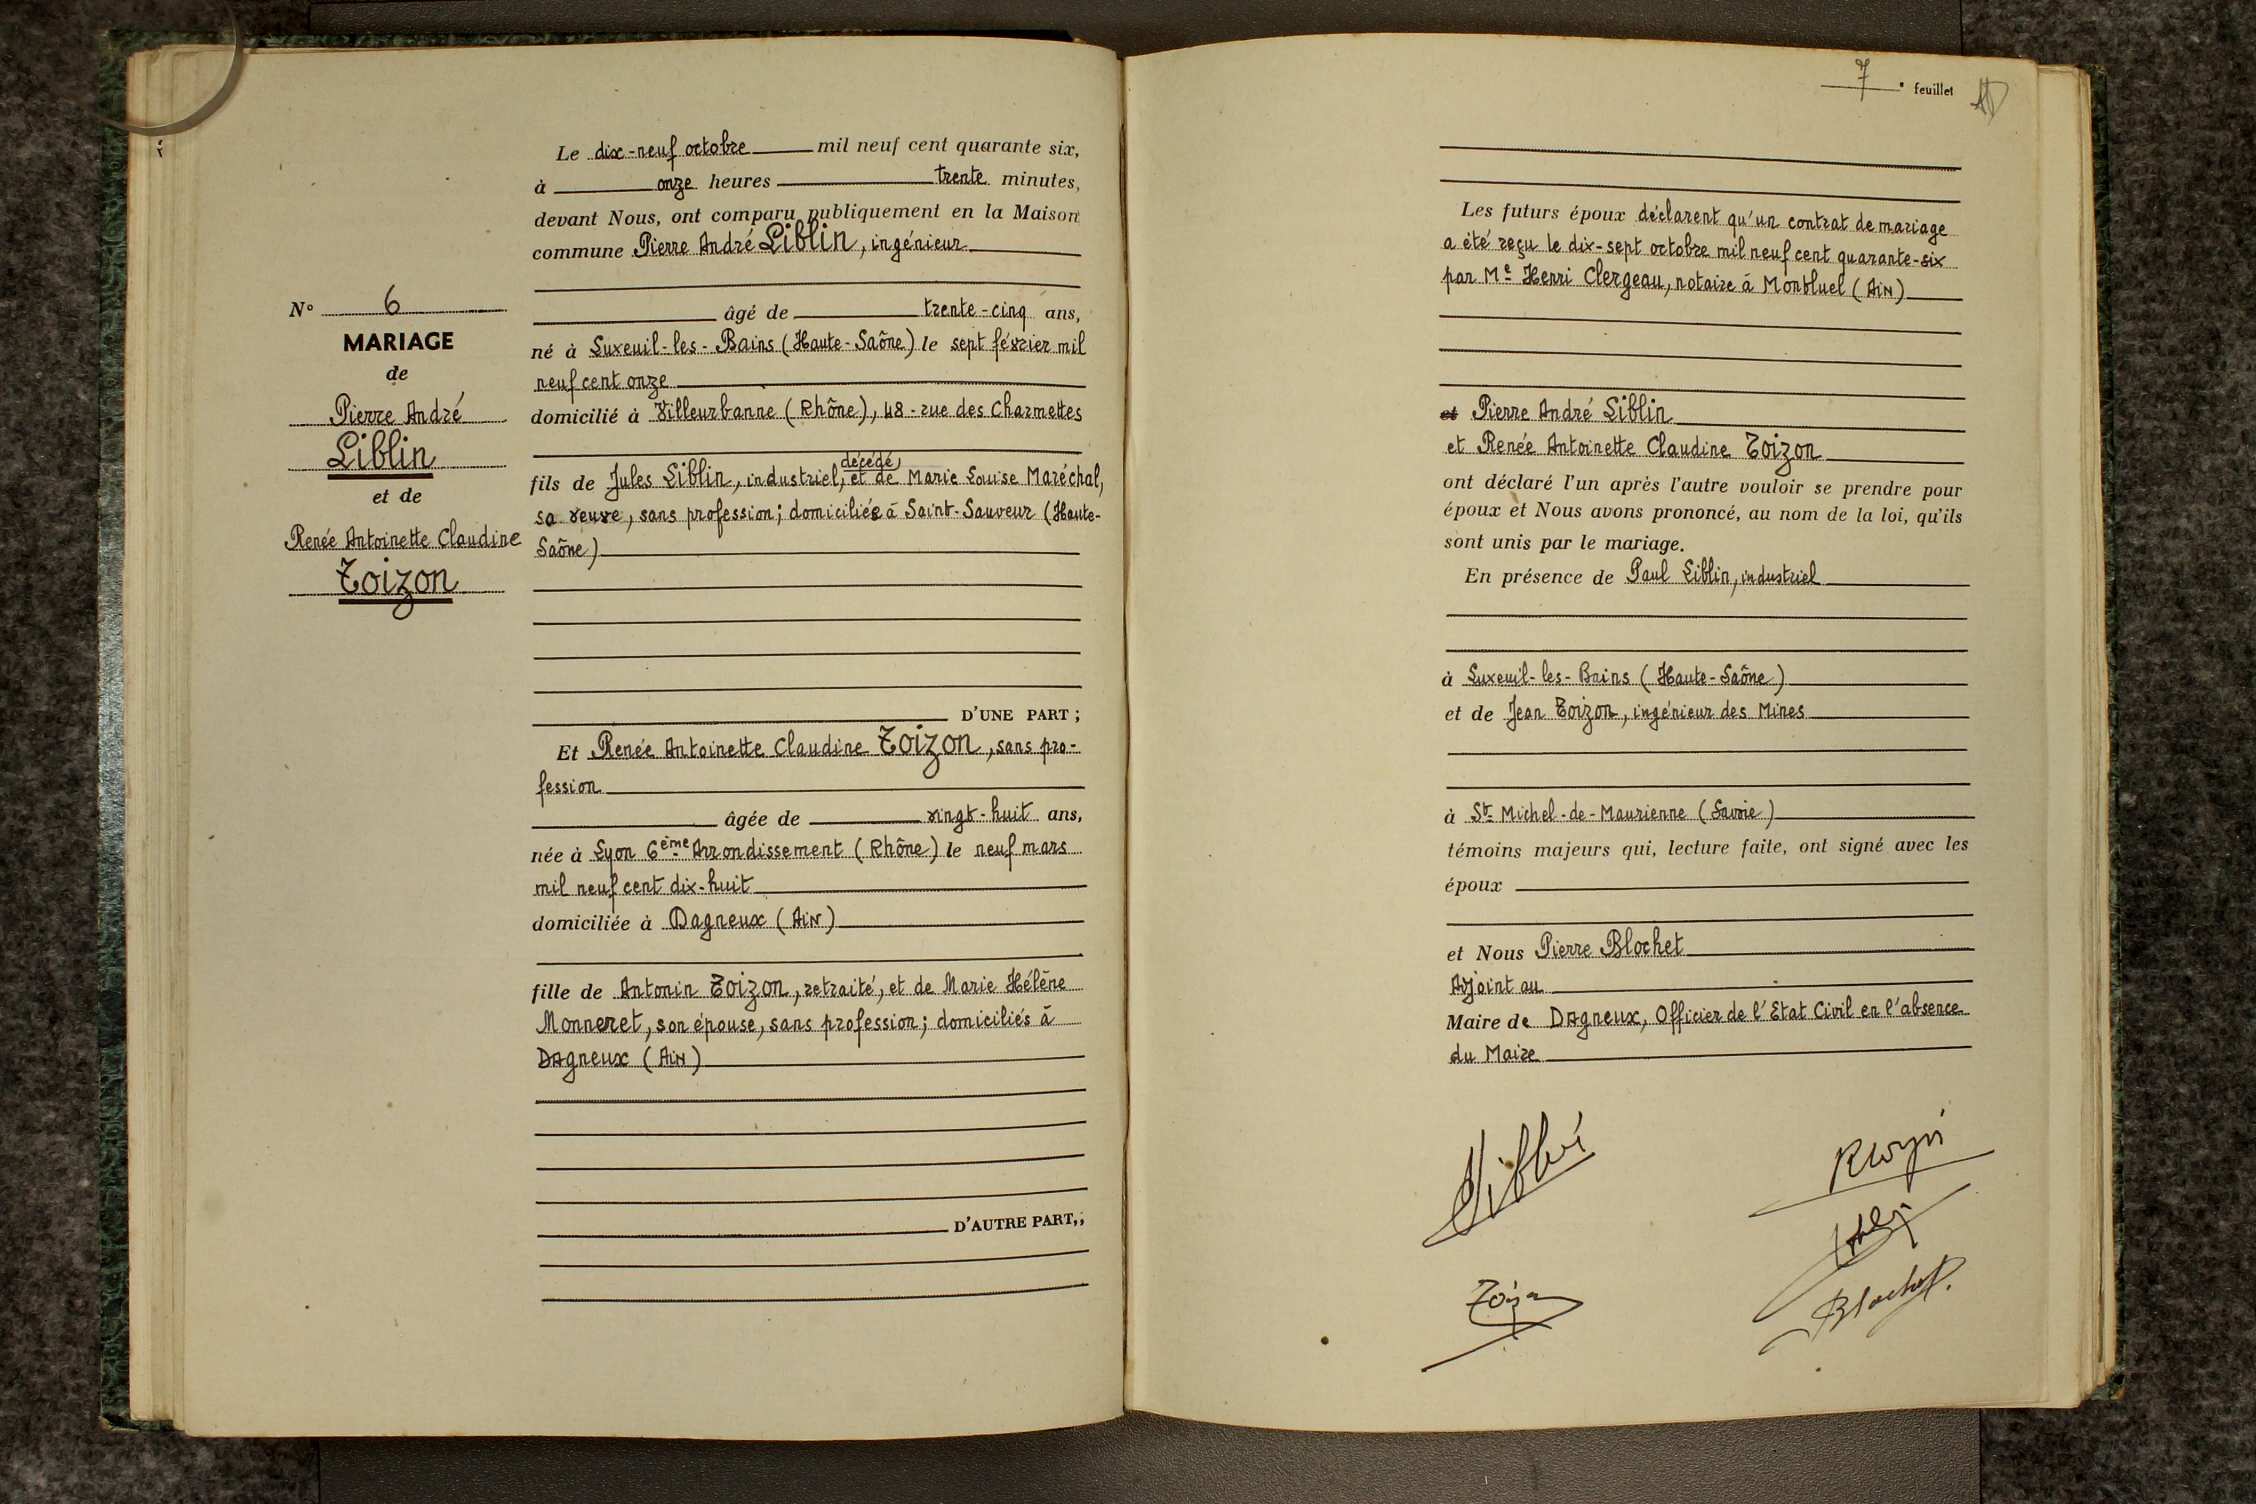 Le dix-neuf octobre mil neuf cent quarante six,
à onze heures trente minutes,
devant Nous, ont comparu publiquement en la Maison
commune Pierre André Liblin, ingénieur
N° 6
âgé de trente-cinq ans,
MARIAGE
né à Luxeuil-les-Bains (Haute-Saône) le sept février mil
de
neuf cent onze
Pierre André
domicilié à Villeurbanne (Rhône), 48-rue des Charmettes
Liblin
décédé
fils de Jules Liblin, industriel, et de Marie Louise Maréchal,
et de
sa veuve, sans profession; domiciliée à Saint-Sauveur (Haute-
Renée Antoinette Claudine
Saône)
Toizon
D'UNE PART ;
Et Renée Antoinette Claudine Toizon, sans pro-
fession
âgée de vingt-huit ans,
née à Lyon 6ème Arrondissement (Rhône) le neuf mars
mil neuf cent dix-huit
domiciliée à Dagneux (Ain)
fille de Antonin Toizon, retraité, et de Marie Hélène
Monneret, son épouse, sans profession; domiciliés à
Dagneux (Ain)
D'AUTRE PART,;
7 e feuillet
Les futurs époux déclarent qu'un contrat de mariage
a été reçu le dix-sept octobre mil neuf cent quarante-six
par Me Henri Clergeau, notaire à Montluel (Ain)
et Pierre André Liblin
et Renée Antoinette Claudine Toizon
ont déclaré l'un après l'autre vouloir se prendre pour
époux et Nous avons prononcé, au nom de la loi, qu'ils
sont unis par le mariage.
En présence de Paul Liblin, industriel
à Luxeuil-les-Bains (Haute-Saône)
et de Jean Toizon, ingénieur des Mines
à St Michel-de-Maurienne (Savoie)
témoins majeurs qui, lecture faite, ont signé avec les
époux
et Nous Pierre Blochet
Adjoint au
Maire de Dagneux, Officier de l'Etat Civil en l'absence
du Maire
Liblin
Toizon
Blochet